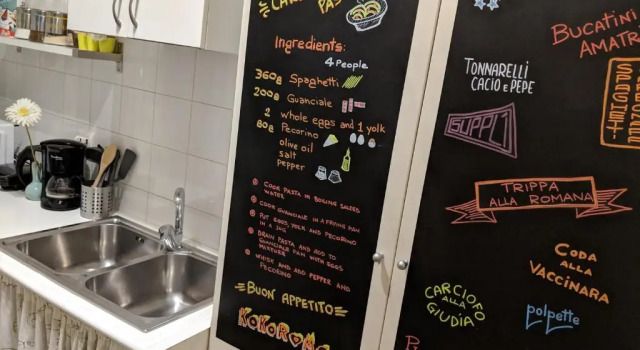 Ingredients:
4 People
360g Spaghetti
200g Guanciale
2 whole eggs and 1 yolk
80g Pecorino
olive oil
salt
pepper
COOK PASTA IN BOILING SALTED
WATER
COOK GUANCIALE IN A FRYING PAN
PUT EGGS, YOLK AND PECORINO
IN A JUG
DRAIN PASTA AND ADD TO
GUANCIALE PAN WITH EGGS
MIXTURE
WHISK AND ADD PEPPER AND
PECORINO
BUON APPETITO
BUCATINI
AMATR
TONNARELLI
CACIO E PEPE
SUPPLÌ
SPAGHETTI
TRIPPA
ALLA ROMANA
CODA
ALLA
VACCINARA
CARCIOFO
ALLA
GIUDIA
polpette